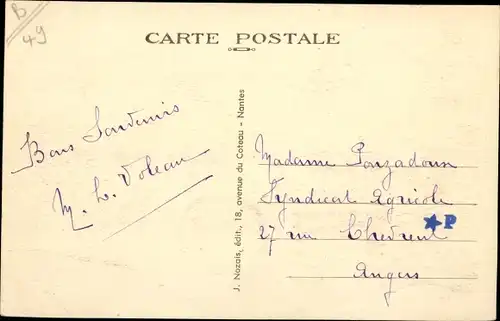 B
49
CARTE POSTALE
Bons Souvenirs
J. Nozais, édit., 18, avenue du Coteau - Nantes
Madame
Syndicat Agricole
27 rue
P
Angers